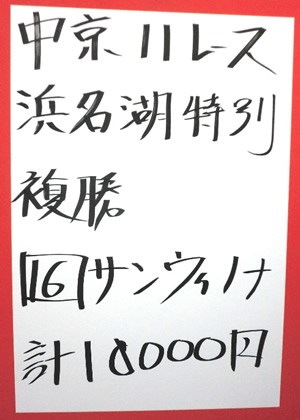 中京11レース
浜名湖特別
複勝
16サンヴィーナ
計10000円